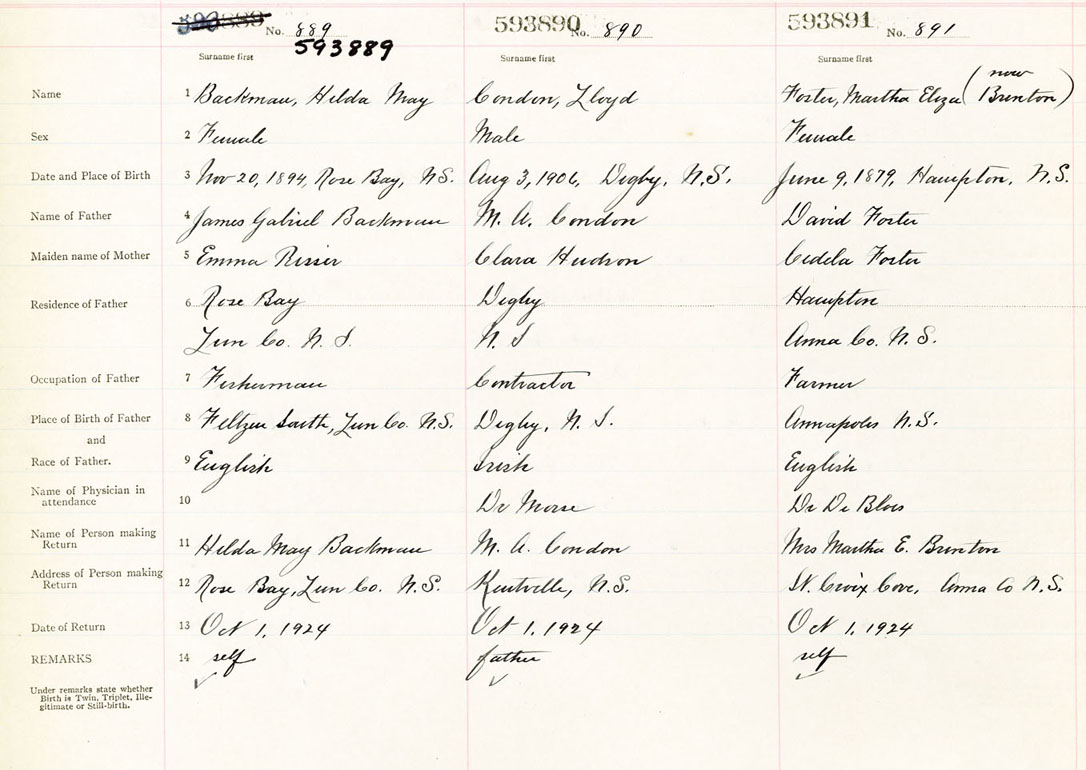 No. 889 593890 No. 890 593891 No. 891
593889
Surname first Surname first Surname first
Name 1 Backman, Hilda May Condon, Lloyd Foster, Martha Eliza (now Brinton)
Sex 2 Female Male Female
Date and Place of Birth 3 Nov 20, 1894, Rose Bay, N.S. Aug 3, 1906, Digby, N.S. June 9, 1879, Hampton, N.S.
Name of Father 4 James Gabriel Backman M. A. Condon David Foster
Maiden name of Mother 5 Emma Risser Clara Hudson Cedela Foster
Residence of Father 6 Rose Bay Digby Hampton
Lun Co. N. S. N. S Anna Co. N. S.
Occupation of Father 7 Fisherman Contractor Farmer
Place of Birth of Father 8 Feltzen South, Lun Co. N.S. Digby, N. S. Annapolis N.S.
and
Race of Father. 9 English Irish English
Name of Physician in
attendance 10 Dr Morse Dr De Blois
Name of Person making
Return 11 Hilda May Backman M. A. Condon Mrs Martha E. Brinton
Address of Person making
Return 12 Rose Bay, Lun Co. N.S. Kentville, N.S. St. Croix Cove, Anna Co N.S.
Date of Return 13 Oct 1, 1924 Oct 1, 1924 Oct 1, 1924
REMARKS 14 self father self
Under remarks state whether
Birth is Twin, Triplet, Ille-
gitimate or Still-birth.